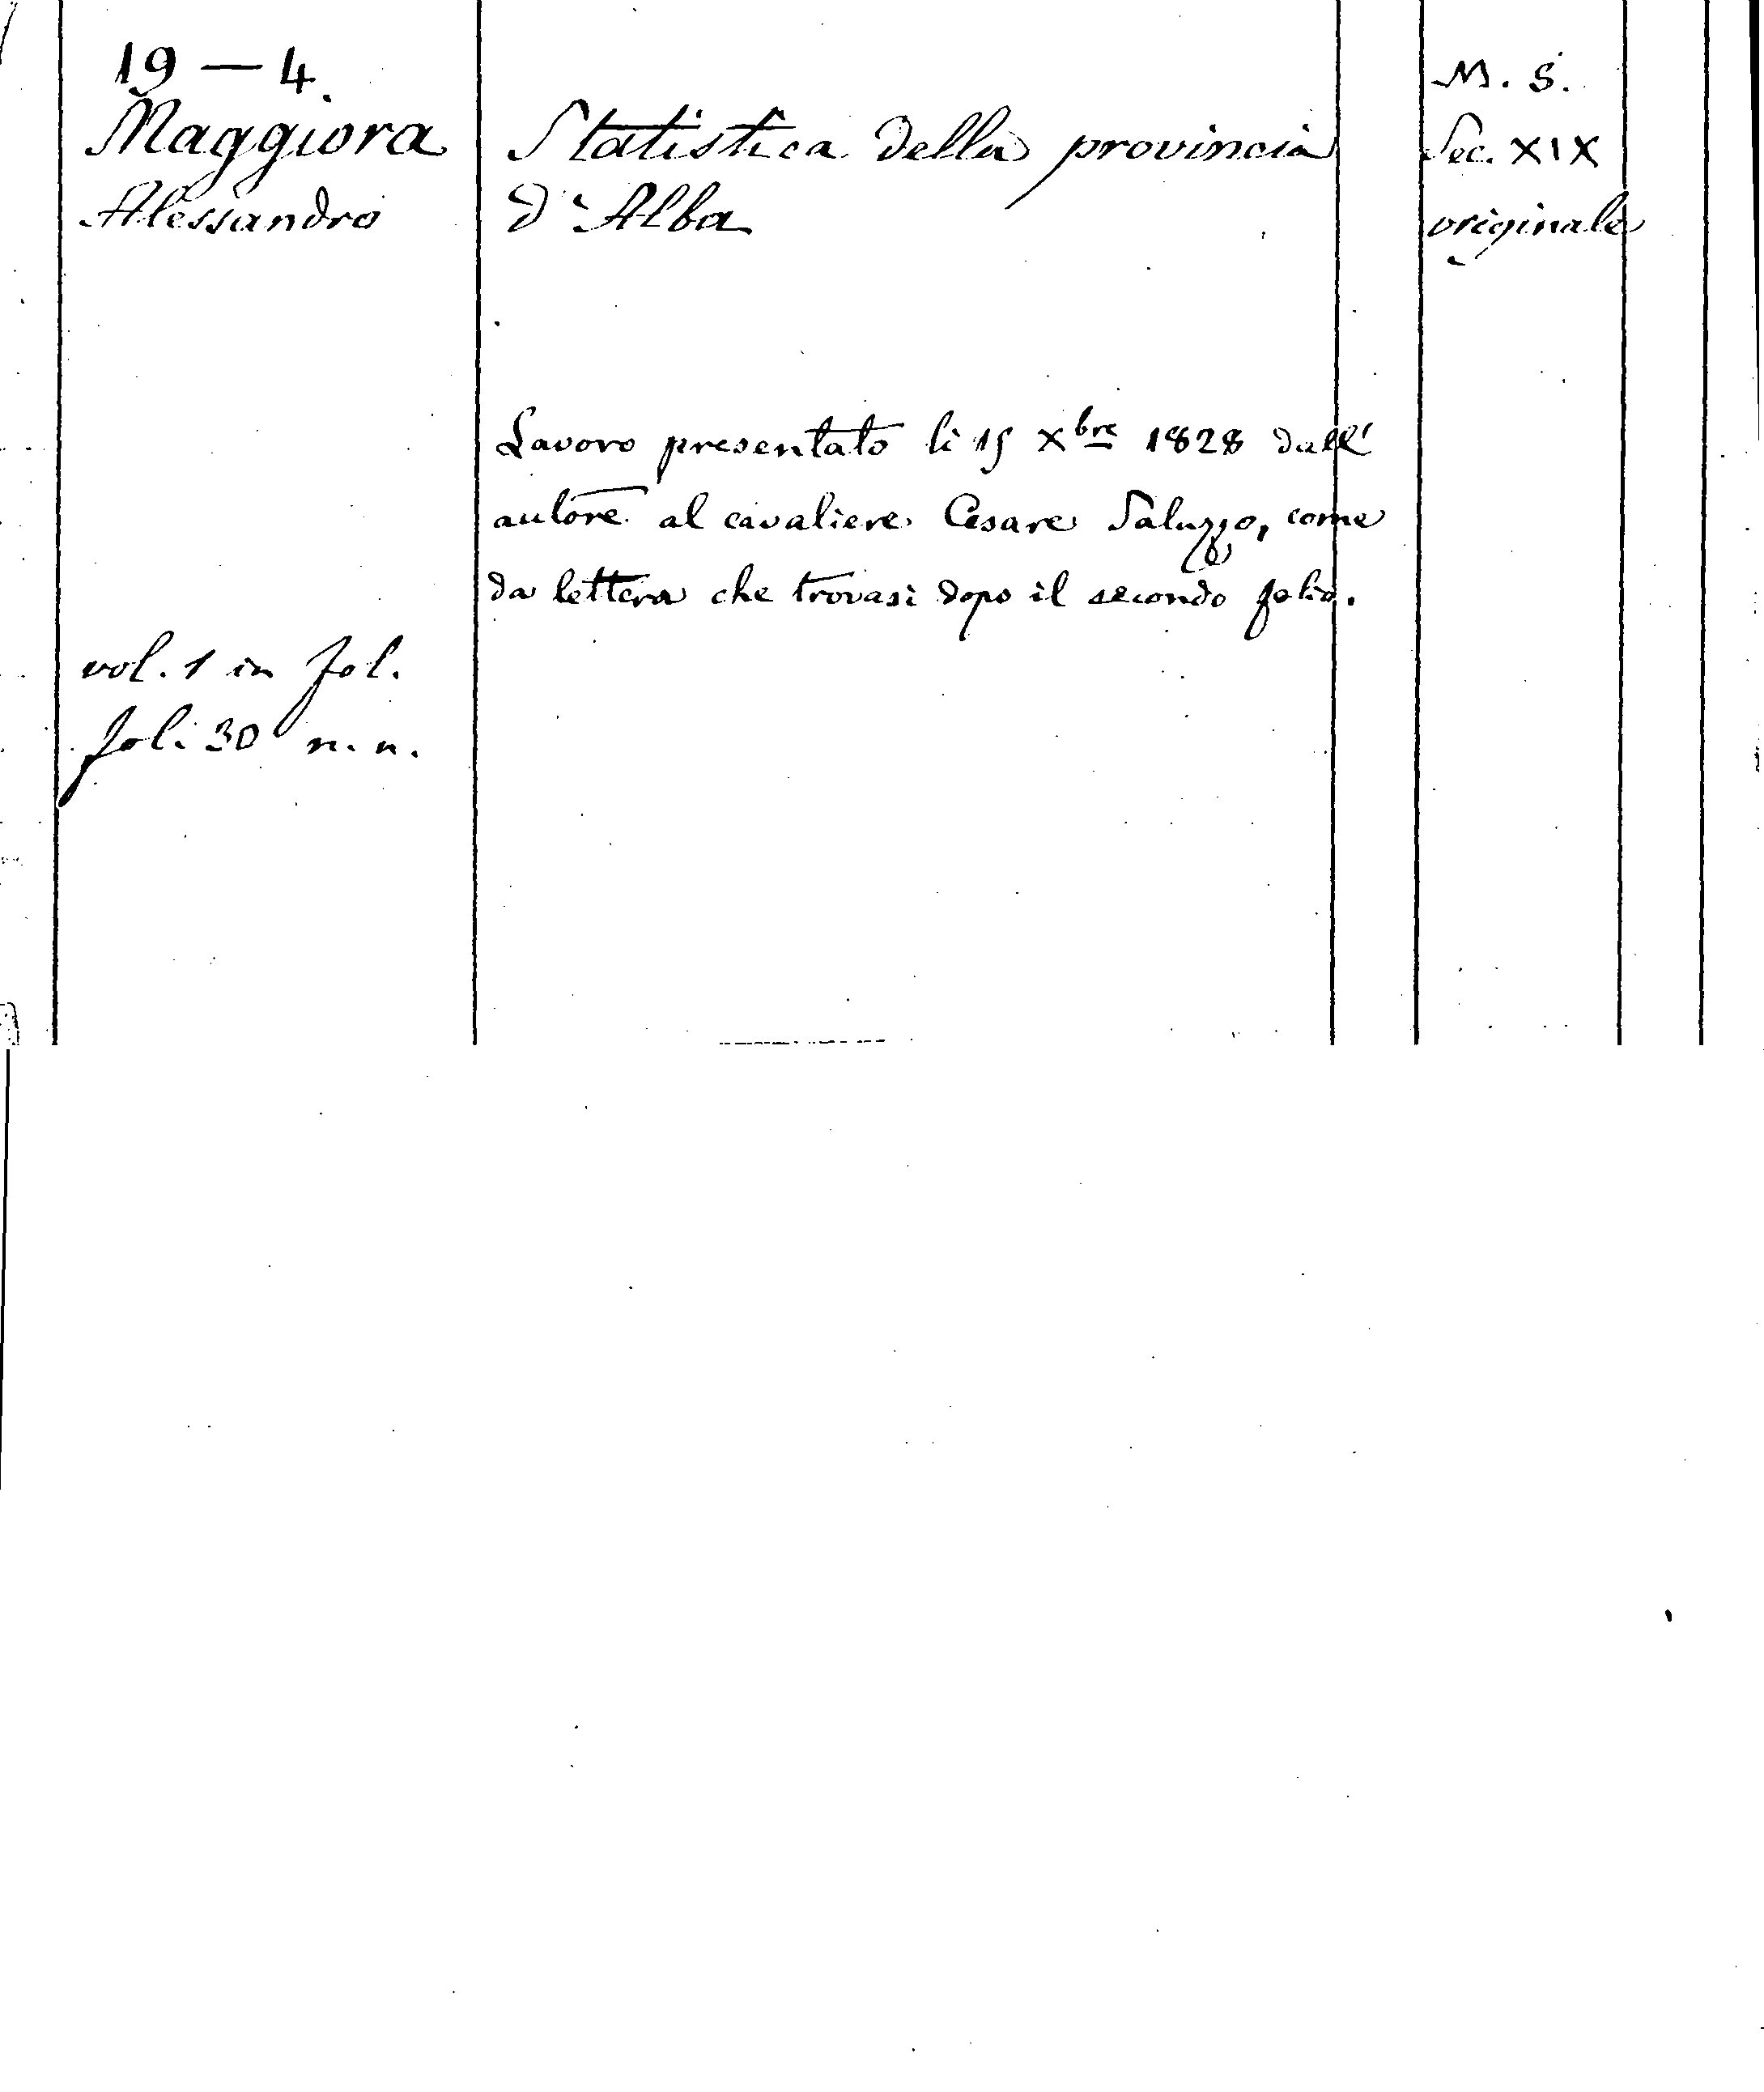 19 — 4.
Maggiora
Alessandro
vol. 1 in fol.
fol. 30 n. n.
Statistica della provincia
d'Alba
Lavoro presentato li 15 Xbre 1828 dall'
autore al cavaliere Cesare Saluzzo, come
da lettera che trovasi dopo il secondo folio.
M. S.
Sec. XIX
originale